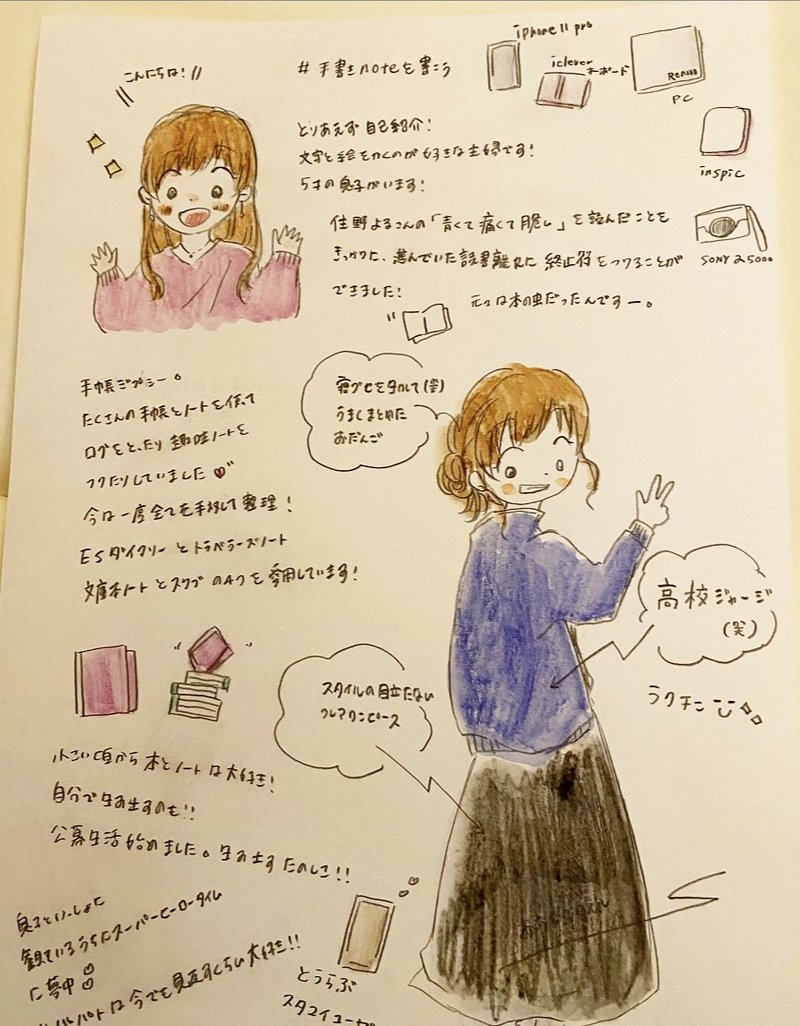 こんにちは!
#手書きnoteを書こう
iphone11 pro
iclever
キーボード
Renooo
PC
inspic
SONY α5000
とりあえず自己紹介!
文字と絵をかくのが好きな主婦です!
5才の息子がいます!
住野よるさんの「青くて痛くて脆い」を読んだことを
きっかけに、進んでいた読書離れに終止符をつけることが
できました!
元々は本の虫だったんですー。
手帳ジプシー。
たくさんの手帳とノートを使って
ログをとったり趣味ノートを
つくったりしていました
今は一度全てを手放して整理!
ESダイアリーとトラベラーズノート
文庫本ノートとスクブのA7を愛用しています!
寝グセを生かして(笑)
うまくまとめた
おだんご
高校ジャージ
(笑)
ラクチン
スタイルの目立たない
フレアワンピース
小さい頃から本とノートは大好き!
自分で生み出すのも!!
公募生活始めました。生み出すたのしさ!!
息子といっしょに
観ているうちにスーパーヒーロータイム
に夢中
は今でも見直すくらい大好き!!
とうらぶ